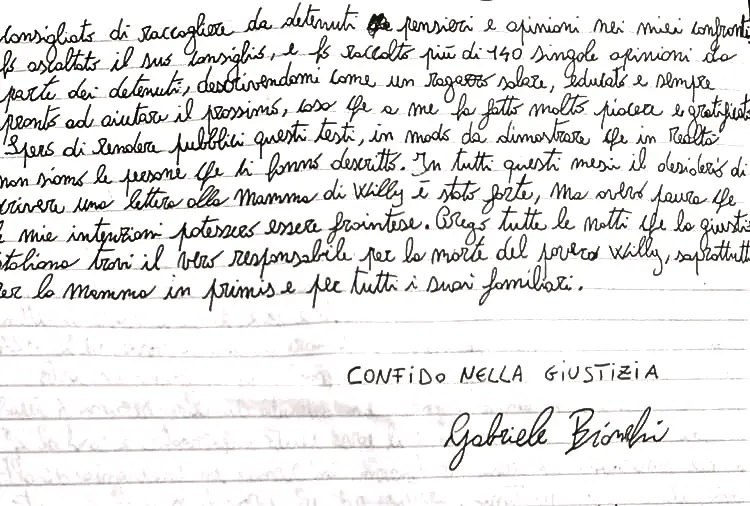 consigliato di raccogliere da detenuti pensieri e opinioni nei miei confronti,
ho ascoltato il suo consiglio, e ho raccolto più di 140 singole opinioni da
parte dei detenuti, descrivendomi come un ragazzo solare, educato e sempre
pronto ad aiutare il prossimo, cosa che a me ha fatto molto piacere e gratificato
Spero di rendere pubblici questi testi, in modo da dimostrare che in realtà
non siamo le persone che ci hanno descritto. In tutti questi mesi il desiderio di
crivere una lettera alla Mamma di Willy è stato forte, ma avevo paura che
le mie intenzioni potessero essere fraintese. Prego tutte le notti che la giusti
italiana trovi il vero responsabile per la morte del povero Willy, soprattutto
per la Mamma in primis e per tutti i suoi familiari.
CONFIDO NELLA GIUSTIZIA
Gabriele Bianchi